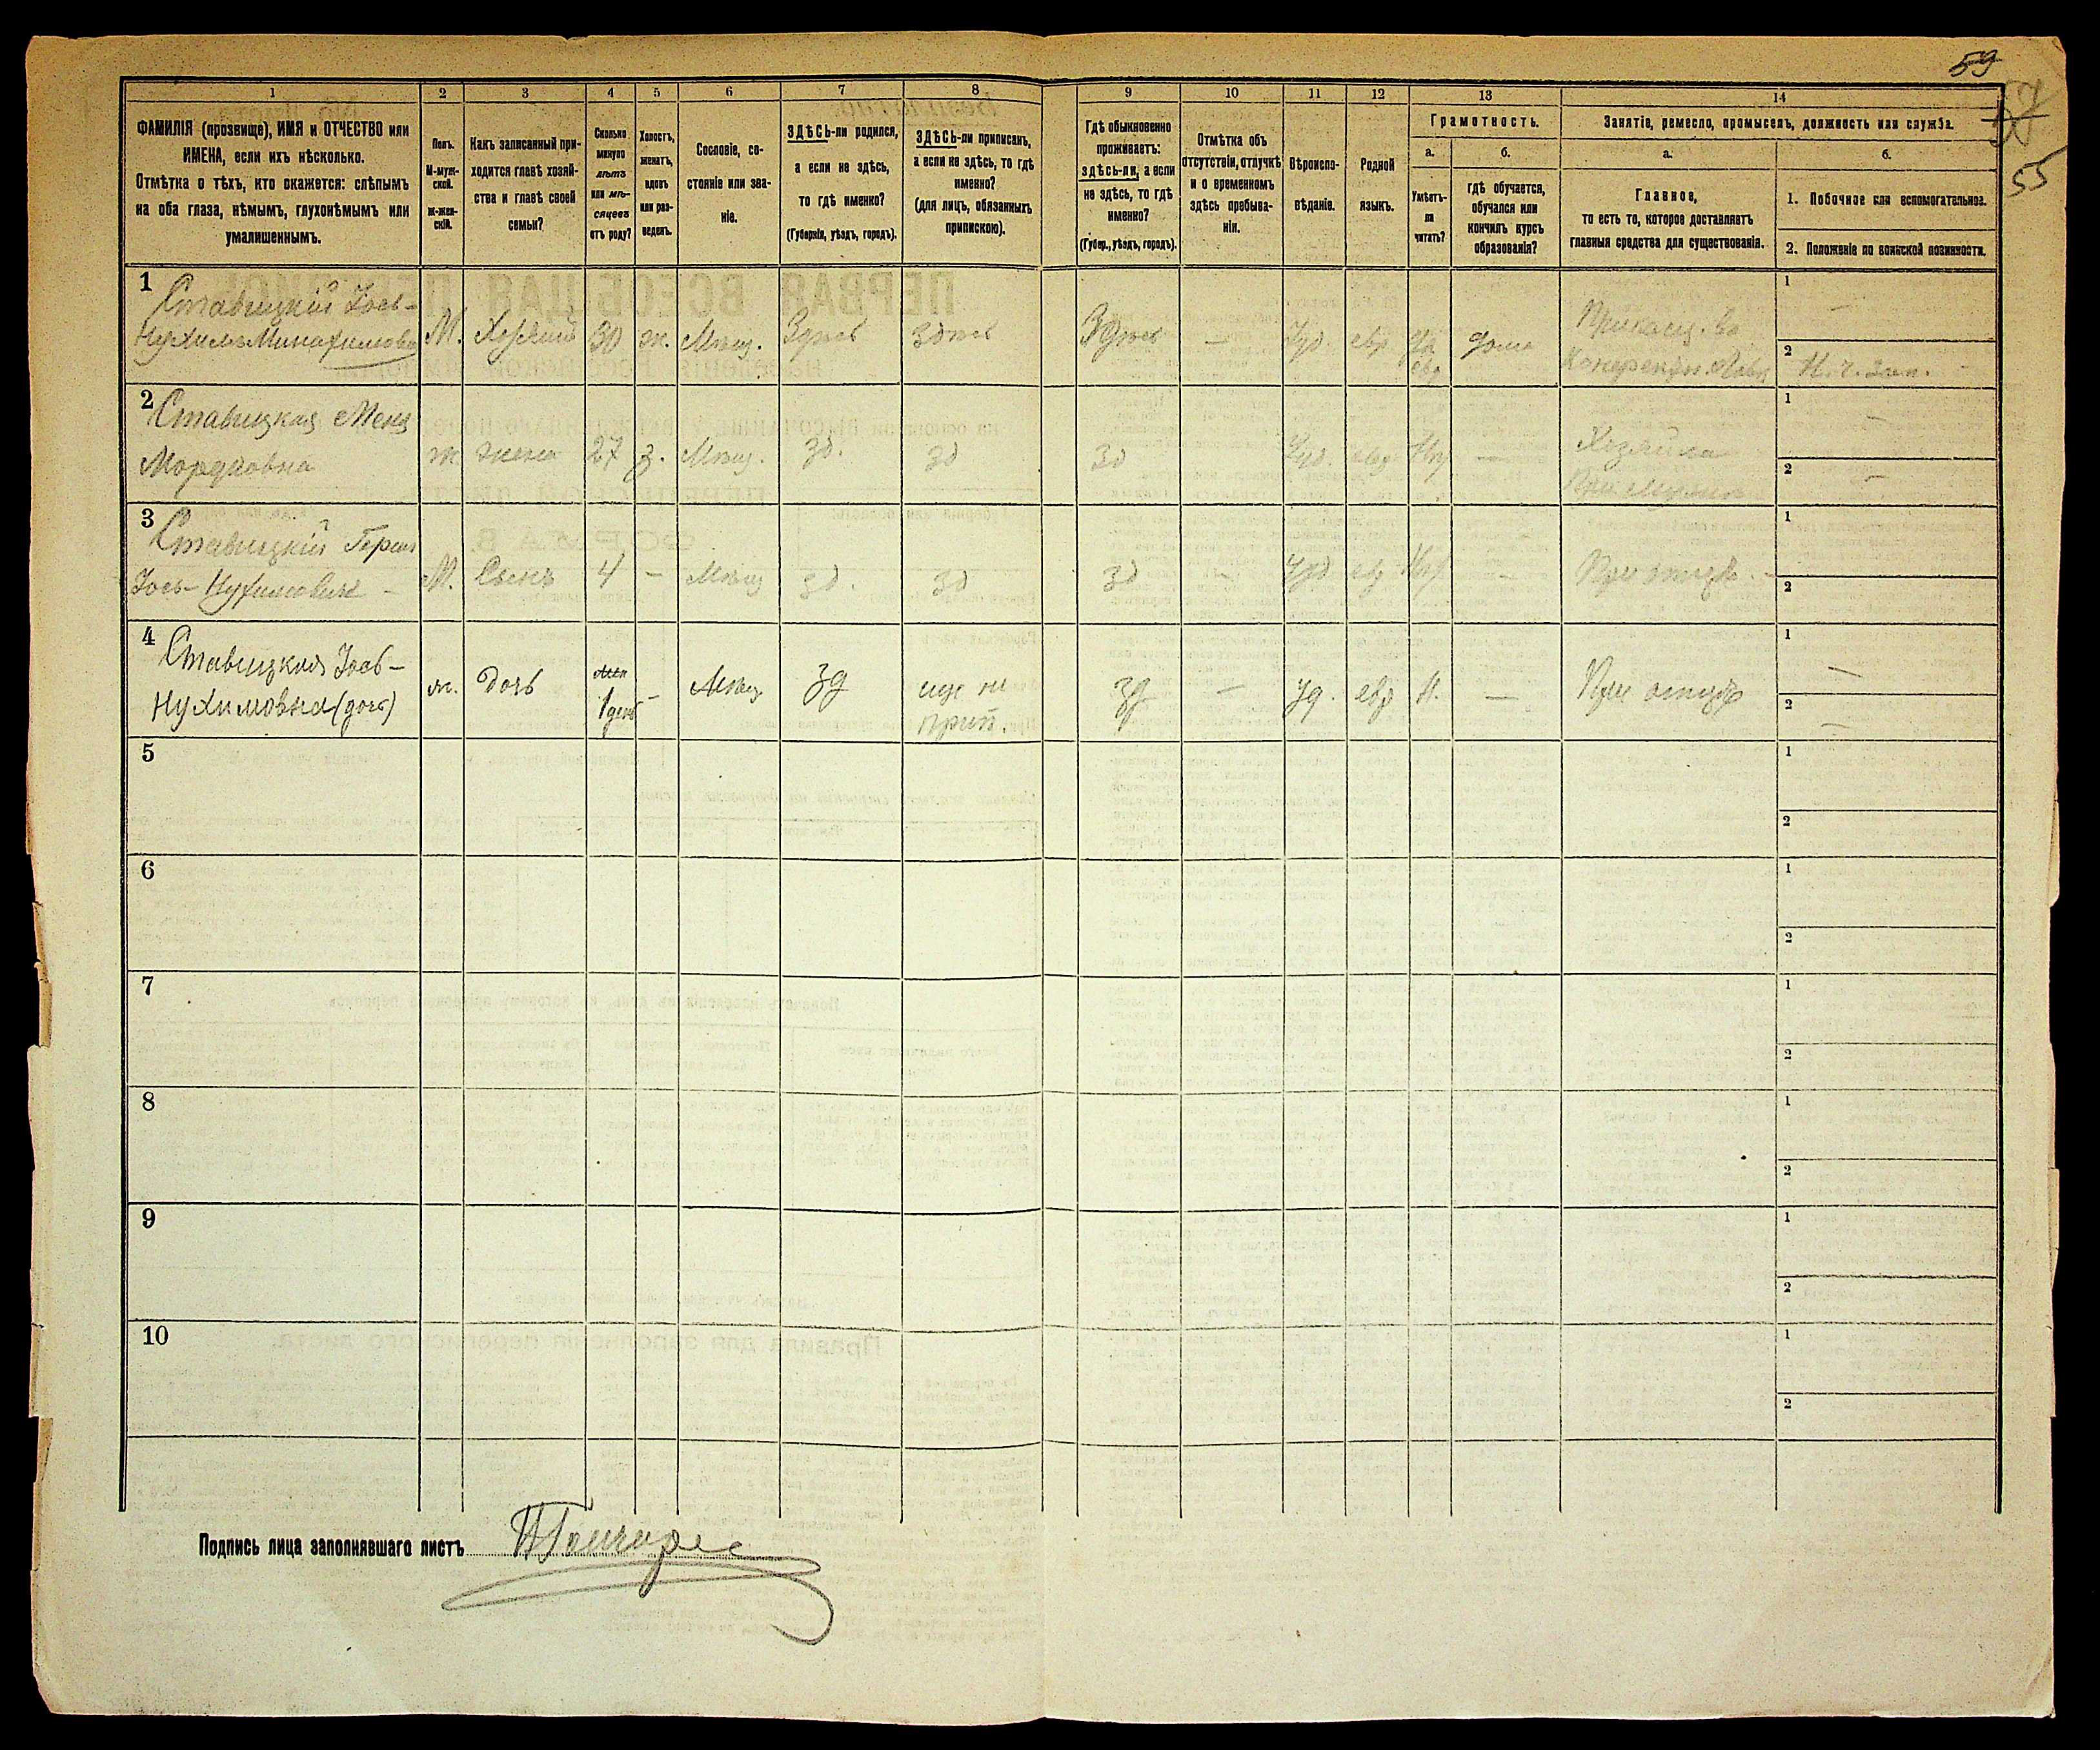 59
57
55
1 2 3 4 5 6 7 8 9 10 11 12 13 14
ФАМИЛІЯ (прозвище), ИМЯ и ОТЧЕСТВО или
ИМЕНА, если ихъ нѣсколько.
Отмѣтка о тѣхъ, кто окажется: слѣпымъ
на оба глаза, нѣмымъ, глухонѣмымъ или
умалишеннымъ.
Полъ.
М-муж-
ской.
ж-жен-
скій.
Какъ записанный при-
ходится главѣ хозяй-
ства и главѣ своей
семьи?
Сколько
минуло
лѣтъ
или мѣ-
сяцевъ
отъ роду?
Холостъ,
женатъ,
вдовъ
или раз-
веденъ.
Сословіе, со-
стояніе или зва-
ніе.
ЗДѢСЬ-ли родился,
а если не здѣсь,
то гдѣ именно?
(Губернія, уѣздъ, городъ).
ЗДѢСЬ-ли приписанъ,
а если не здѣсь, то гдѣ
именно?
(для лицъ, обязанныхъ
припискою).
Гдѣ обыкновенно
проживаетъ:
здѣсь-ли, а если
не здѣсь, то гдѣ
именно?
(Губер., уѣздъ, городъ).
Отмѣтка объ
отсутствіи, отлучкѣ
и о временномъ
здѣсь пребыва-
ніи.
Вѣроиспо-
вѣданіе.
Родной
языкъ.
Грамотность.
а.
Умѣетъ-
ли
читать?
б.
гдѣ обучается,
обучался или
кончилъ курсъ
образованія?
Занятіе, ремесло, промыселъ, должность или служба.
а.
Главное,
то есть то, которое доставляетъ
главныя средства для существованія.
б.
1. Побочное или вспомогательное.
2. Положеніе по воинской повинности.
1
Ставицкій Іось-
Нухимъ Минахимовъ
М. Хозяинъ 30 ж. Мѣщ. Здѣсь здѣсь Здѣсь — Іуд. евр да
евр
дома
Приказч. во
1 —
2 Н. ч. зап.
2
Ставицкая Меня
Мордковна
ж жена 27 з. Мѣщ. зд. зд зд Іуд. евр Нѣ —
Хозяйка
При мужѣ
1 —
2 —
3
Ставицкій Герш
Іось-Нухимовичъ —
М. Сынъ 4 — Мѣщ зд зд зд — Іуд евр Нѣ —
При отцѣ.
1
2
4
Ставицкая Іось-
Нухимовна (дочь)
ж. дочь
1 день
— Мѣщ зд
еще не
прип.
зд — Іуд. евр Н. —
При отцѣ
1 —
2 —
5
1
2
6
1
2
7
1
2
8
1
2
9
1
2
10
1
2
Подпись лица заполнявшаго листъ